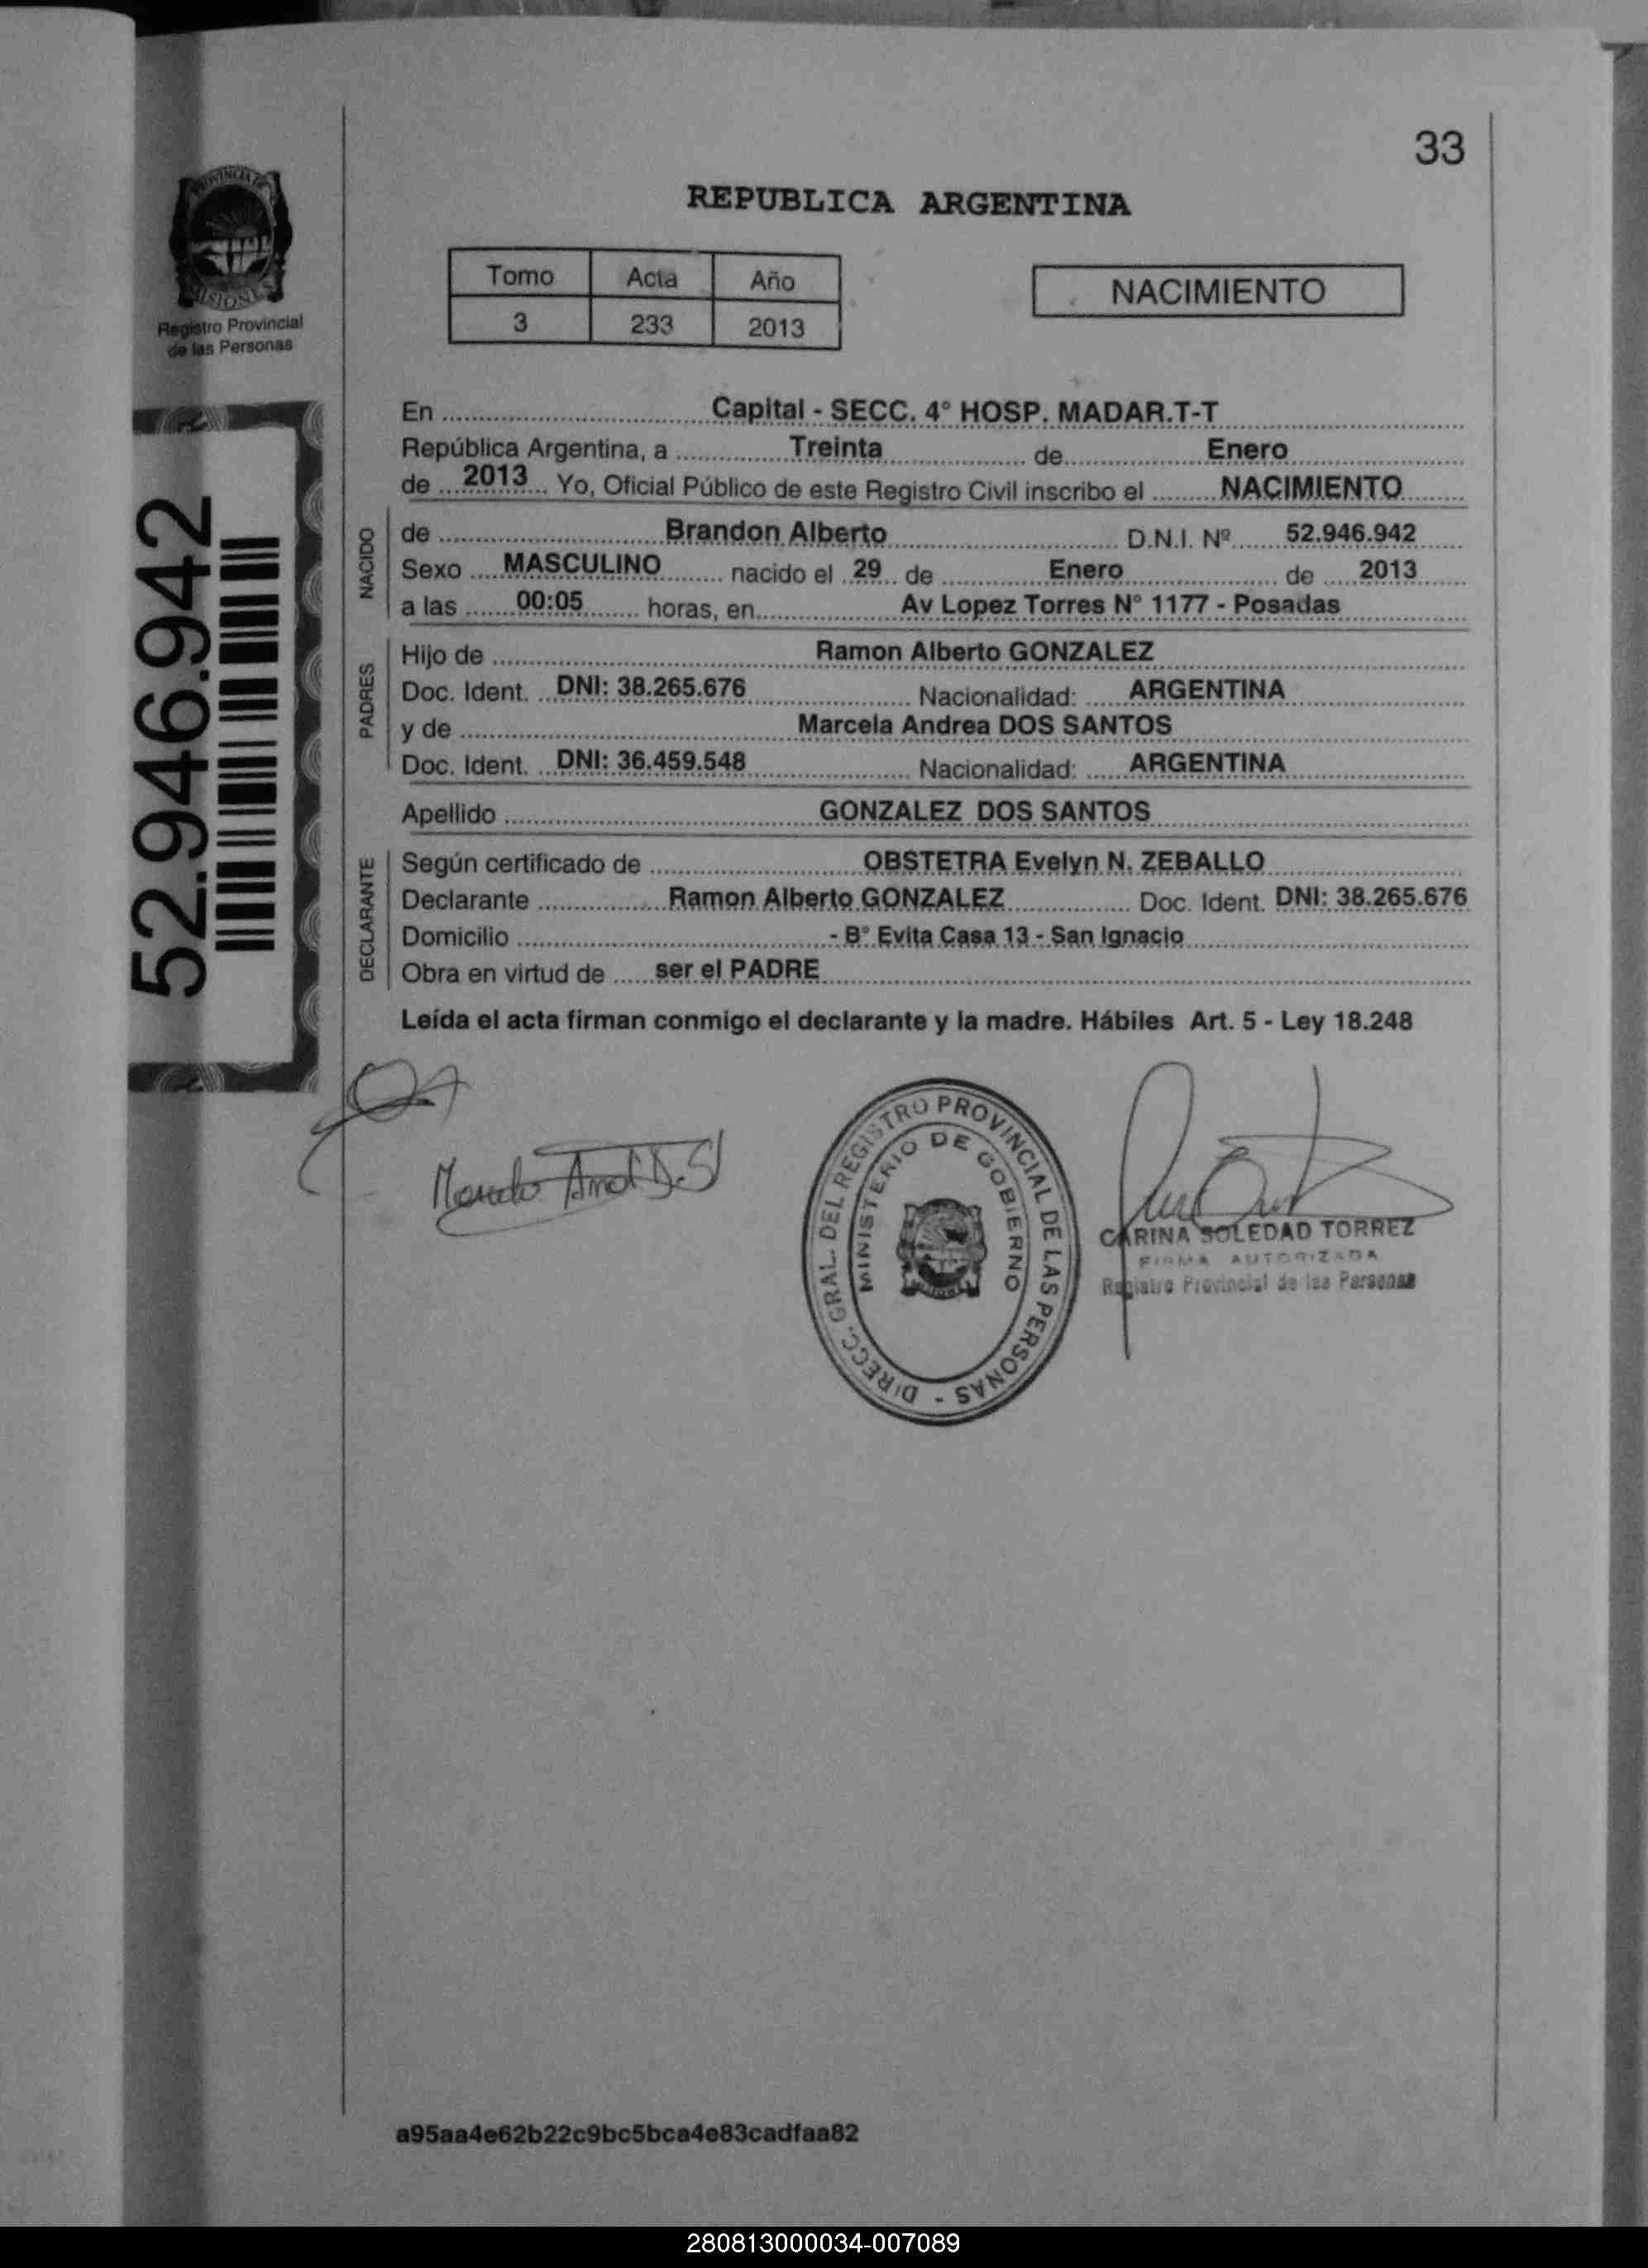 33
REPUBLICA ARGENTINA
PROVINCIA DE
MISIONES
Registro Provincial
de las Personas
Tomo Acta Año
3 233 2013
NACIMIENTO
52.946.942
En Capital - SECC. 4° HOSP. MADAR.T-T
República Argentina, a Treinta de Enero
de 2013 Yo, Oficial Público de este Registro Civil inscribo el NACIMIENTO
NACIDO
de Brandon Alberto D.N.I. Nº 52.946.942
Sexo MASCULINO nacido el 29 de Enero de 2013
a las 00:05 horas, en Av Lopez Torres N° 1177 - Posadas
PADRES
Hijo de Ramon Alberto GONZALEZ
Doc. Ident. DNI: 38.265.676 Nacionalidad: ARGENTINA
y de Marcela Andrea DOS SANTOS
Doc. Ident. DNI: 36.459.548 Nacionalidad: ARGENTINA
Apellido GONZALEZ DOS SANTOS
DECLARANTE
Según certificado de OBSTETRA Evelyn N. ZEBALLO
Declarante Ramon Alberto GONZALEZ Doc. Ident. DNI: 38.265.676
Domicilio - B° Evita Casa 13 - San Ignacio
Obra en virtud de ser el PADRE
Leída el acta firman conmigo el declarante y la madre. Hábiles Art. 5 - Ley 18.248
DIRECC. GRAL. DEL REGISTRO PROVINCIAL DE LAS PERSONAS -
MINISTERIO DE GOBIERNO
CARINA SOLEDAD TORREZ
FIRMA AUTORIZADA
Registro Provincial de las Personas
a95aa4e62b22c9bc5bca4e83cadfaa82
280813000034-007089